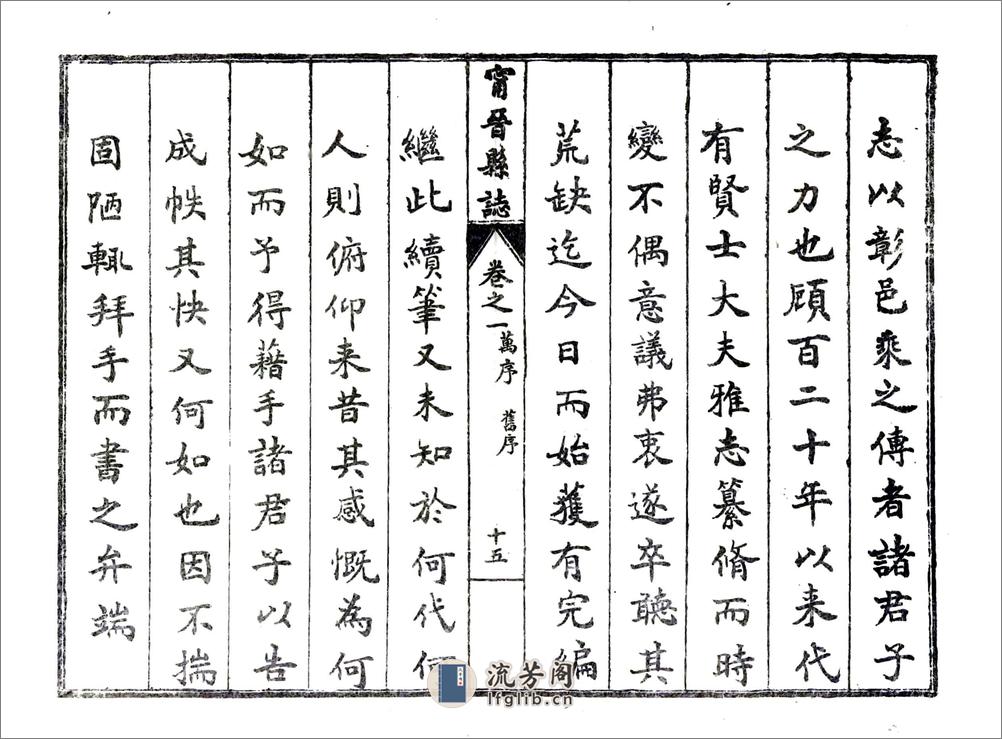 志以彰邑乘之傳者諸君子
之力也顧百二十年以来代
有賢士大夫雅志纂脩而時
變不偶意議弗衷遂卒聽其
荒缺迄今日而始獲有完編
甯晉縣誌
卷之一
萬序 舊序
十五
繼此續筆又未知於何代何
人則俯仰来昔其感慨為何
如而予得藉手諸君子以告
成帙其快又何如也因不揣
固陋輒拜手而書之弁端
流芳阁
lfglib.cn